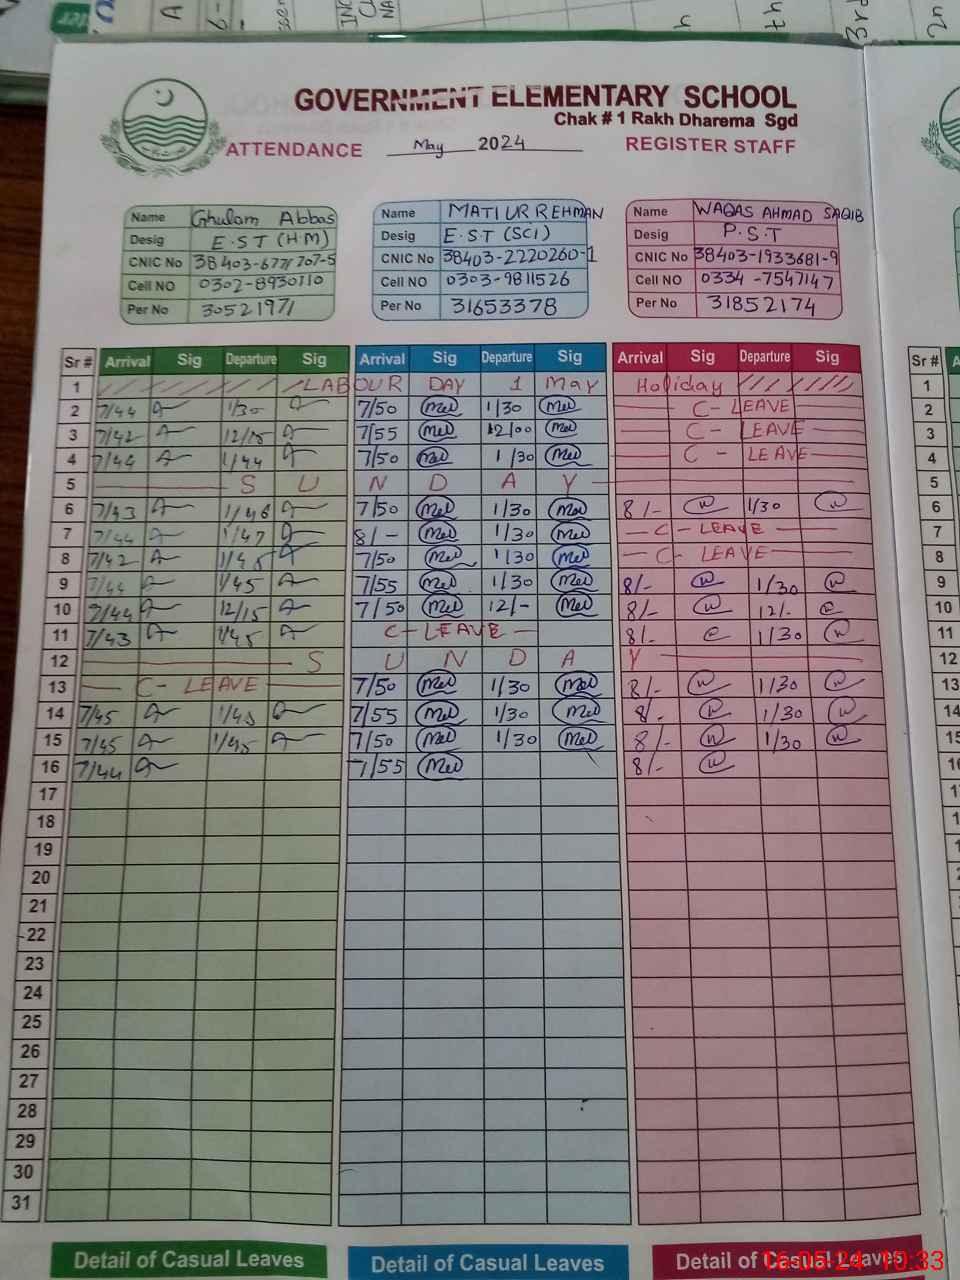 A
6-
INC
CL
NA
h
th
3rd
2n
GOVERNMENT ELEMENTARY SCHOOL
Chak # 1 Rakh Dharema Sgd
ATTENDANCE May 2024 REGISTER STAFF
Name Ghulam Abbas Name MATI UR REHMAN Name WAQAS AHMAD SAQIB
Desig E.ST (H.M) Desig E.ST (SCI) Desig P.S.T
CNIC No 38403-6771707-5 CNIC No 38403-2220260-1 CNIC No 38403-1933681-9
Cell NO 0302-8930110 Cell NO 0303-9811526 Cell NO 0334-7547147
Per No 30521971 Per No 31653378 Per No 31852174
Sr # Arrival Sig Departure Sig Arrival Sig Departure Sig Arrival Sig Departure Sig Sr #
1 LABOUR DAY 1 May Holiday 1
2 7/44 1/30 7/50 1/30 C- LEAVE 2
3 7/42 12/15 7/55 12/00 C- LEAVE 3
4 7/44 1/44 7/50 1/30 C - LEAVE 4
5 S U N D A Y 5
6 7/43 1/46 7/50 1/30 8/- 1/30 6
7 7/44 1/47 8/- 1/30 C- LEAVE 7
8 7/42 1/45 7/50 1/30 C- LEAVE 8
9 7/44 1/45 7/55 1/30 8/- 1/30 9
10 7/44 12/15 7/50 12/- 8/- 12/- 10
11 7/43 1/45 C- LEAVE 8/- 1/30 11
12 S U N D A Y 12
13 C- LEAVE 7/50 1/30 8/- 1/30 13
14 7/45 1/45 7/55 1/30 8/- 1/30 14
15 7/45 1/45 7/50 1/30 8/- 1/30 15
16 7/44 7/55 8/- 16
17
18
19
20
21
22
23
24
25
26
27
28
29
30
31
Detail of Casual Leaves Detail of Casual Leaves Detail of Casual Leaves
16-05-24 10:33